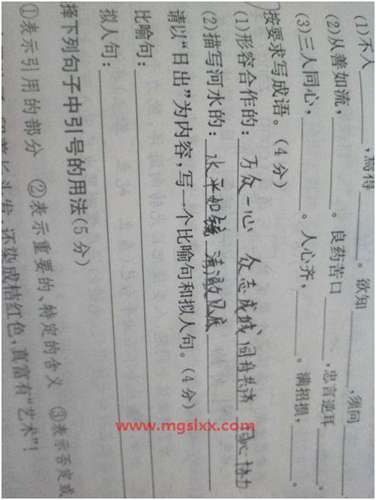 (1)不入______,焉得______。欲知______,须问______
(2)从善如流,______。良药苦口______,忠言逆耳______。
(3)三人同心,______。人心齐,______。满招损,______。
按要求写成语。(4分)
(1)形容合作的:万众一心 众志成城 同舟共济 协力
(2)描写河水的:水平如镜 清澈见底
请以“日出”为内容,写一个比喻句和拟人句。(4分)
比喻句:
拟人句:
择下列句子中引号的用法(5分)
①表示引用的部分 ②表示重要的、特定的含义 ③表示否定或
着长头发,还染成桔红色,真富有“艺术”!
www.mgslxx.com